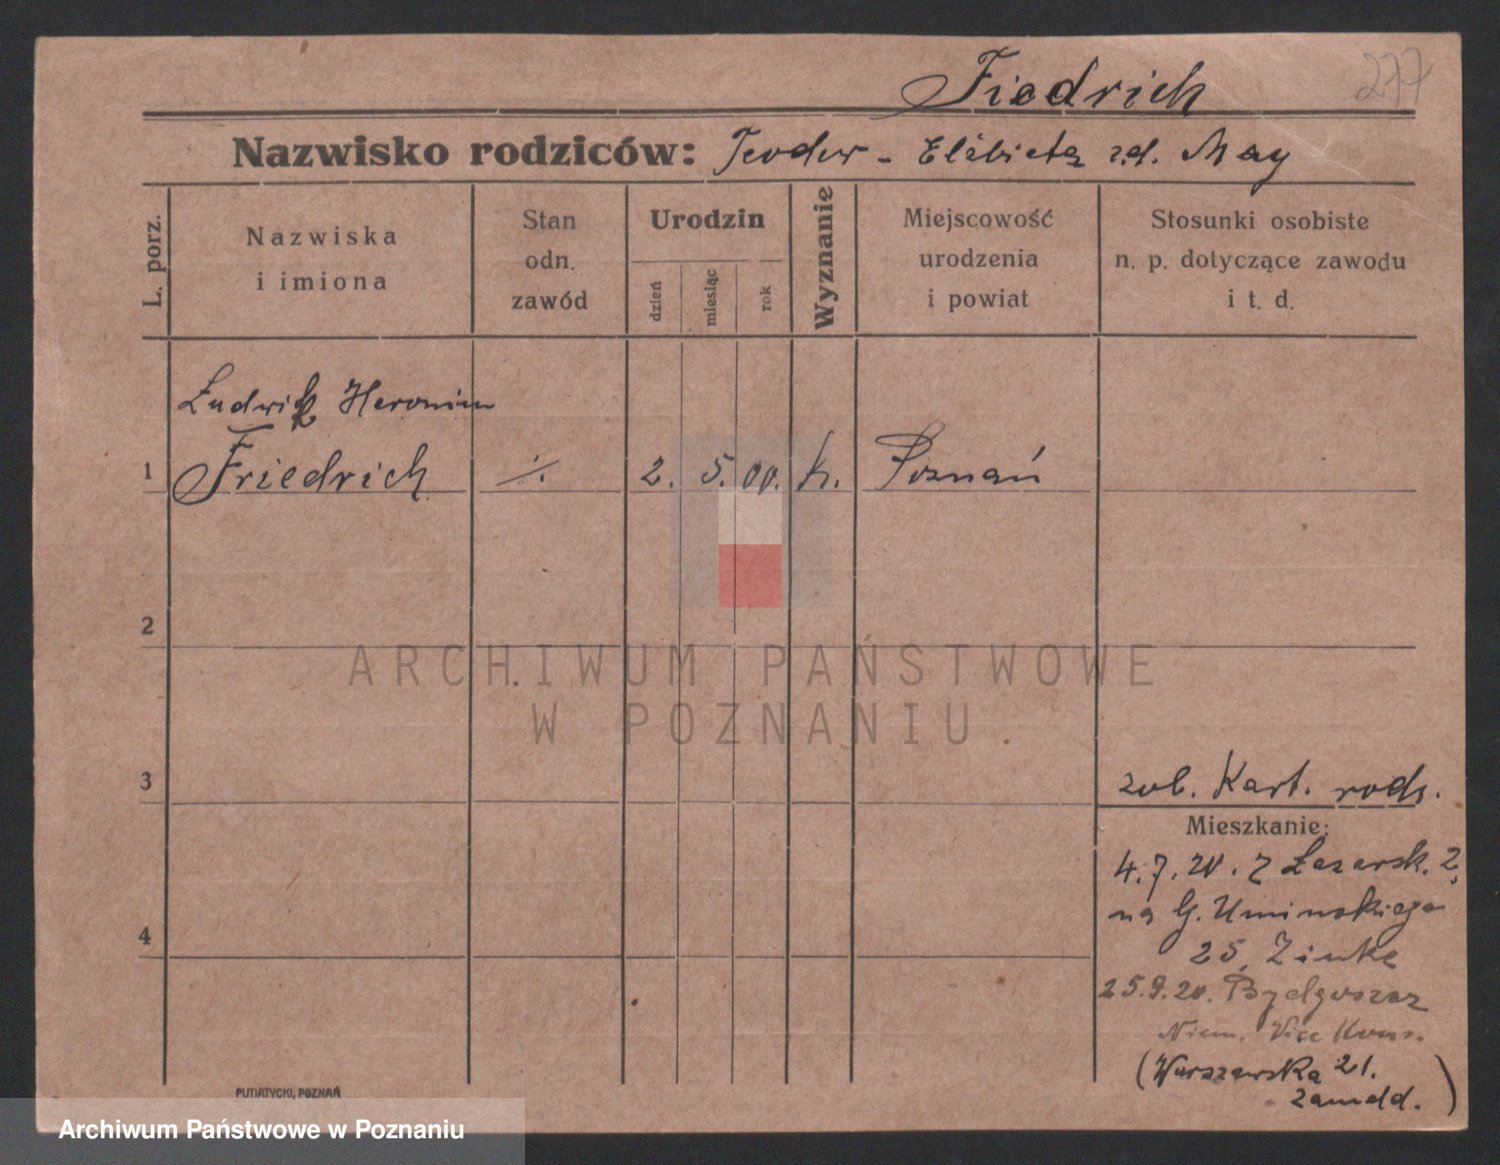 277
Fiedrich
Nazwisko rodziców: Teodor - Elżbieta zd. May
L. porz.
Nazwiska
i imiona
Stan
odn.
zawód
Urodzin
dzień
miesiąc
rok
Wyznanie
Miejscowość
urodzenia
i powiat
Stosunki osobiste
n. p. dotyczące zawodu
i t. d.
Ludwik Heronim
1 Friedrich ·/. 2. 5. 00. k. Poznań
2
ARCHIWUM PAŃSTWOWE
W POZNANIU
3
zob. Kart. rodz.
Mieszkanie:
4.7.20. z Łazarsk. 2,
na G. Umińskiego
25, Zinke
4
25.9.20. Bydgoszcz
Niem. Vice Kons.
(Warszawska 21.
zameld.)
PUTIATYCKI, POZNAŃ
Archiwum Państwowe w Poznaniu